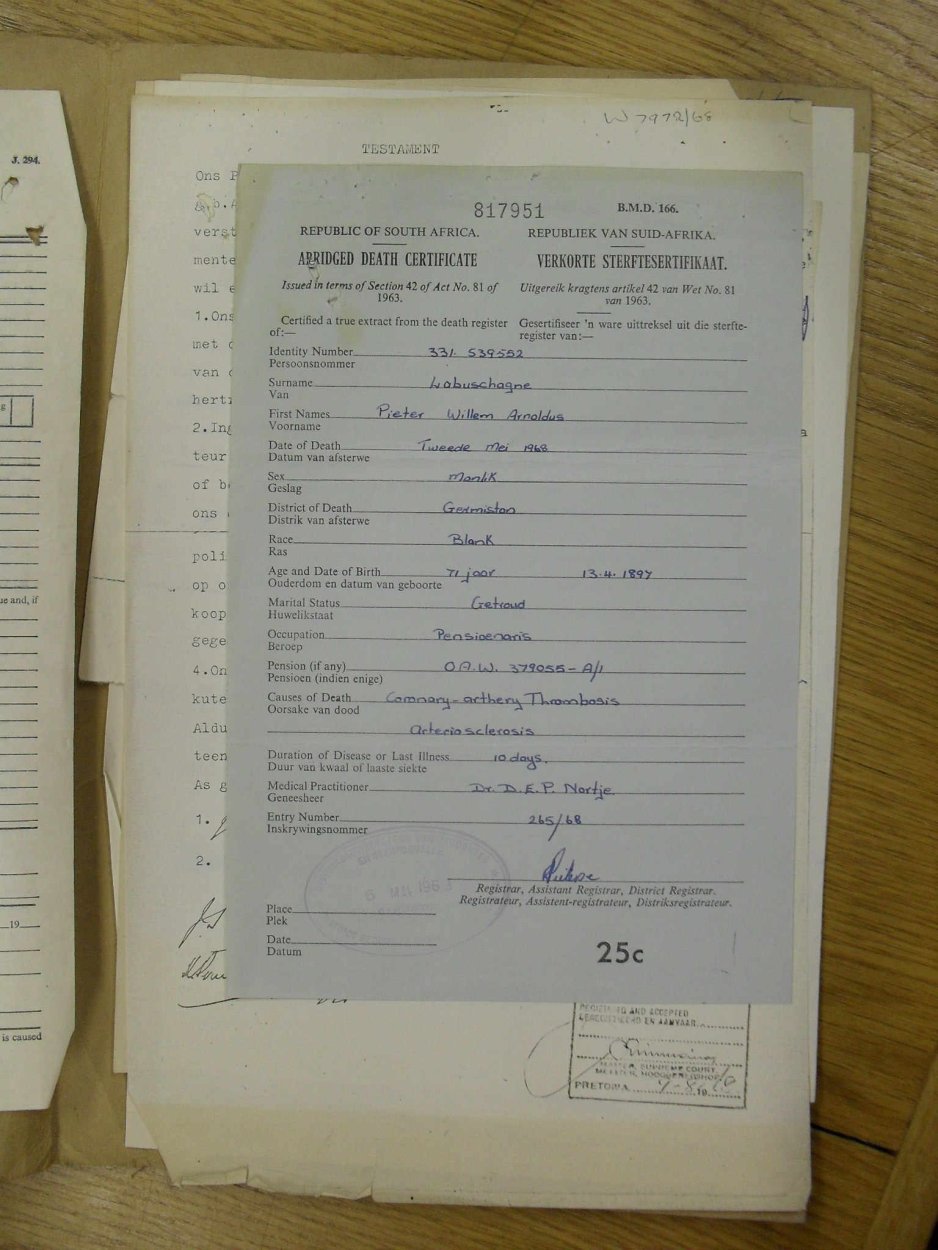 J. 294.
W 7972/68
TESTAMENT
Ons P
g.b.
verst
mente
wil e
1.Ons
met
van
hert
2.Ing
teur
of b
ons
poli
op o
koop
gege
4.On
kute
Aldu
teen
As g
1.
2.
ue and, if
19
is caused
817951
B.M.D. 166.
REPUBLIC OF SOUTH AFRICA.
REPUBLIEK VAN SUID-AFRIKA.
ABRIDGED DEATH CERTIFICATE
VERKORTE STERFTESERTIFIKAAT.
Issued in terms of Section 42 of Act No. 81 of
1963.
Uitgereik kragtens artikel 42 van Wet No. 81
van 1963.
Certified a true extract from the death register
of:—
Gesertifiseer 'n ware uittreksel uit die sterfte-
register van:—
Identity Number 331 539552
Persoonsnommer
Surname Labuschagne
Van
First Names Pieter Willem Arnoldus
Voorname
Date of Death Tweede Mei 1968
Datum van afsterwe
Sex Manlik
Geslag
District of Death Germiston
Distrik van afsterwe
Race Blank
Ras
Age and Date of Birth 71 jaar 13.4.1897
Ouderdom en datum van geboorte
Marital Status Getroud
Huwelikstaat
Occupation Pensioenaris
Beroep
Pension (if any) O.A.W. 379055-A/1
Pensioen (indien enige)
Causes of Death Coronary-arthery Thrombosis
Oorsake van dood
Arteriosclerosis
Duration of Disease or Last Illness 10 days.
Duur van kwaal of laaste siekte
Medical Practitioner Dr. D.E.P. Nortje
Geneesheer
Entry Number 265/68
Inskrywingsnommer
Registrar, Assistant Registrar, District Registrar.
Registrateur, Assistent-registrateur, Distriksregistrateur.
Place
Plek
Date
Datum
25c
AND ACCEPTED
EN AANVAAR
MASTER, SUPREME COURT
MEESTER, HOOGGEREGSHOF
PRETORIA 19